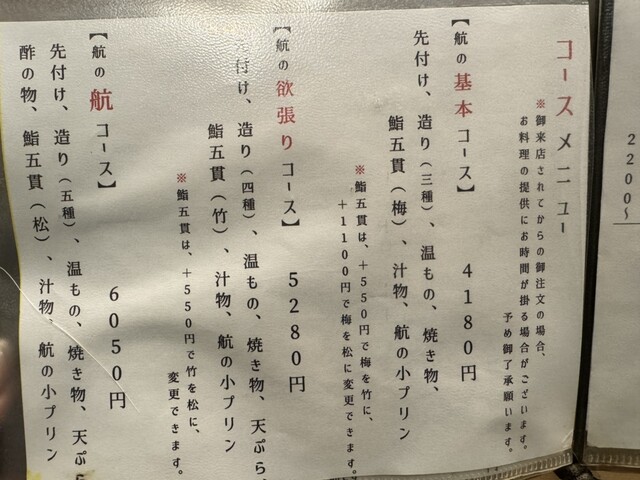 コースメニュー
※御来店されてからの御注文の場合、
お料理の提供にお時間が掛る場合がございます。
予め御了承願います。
【航の基本コース】 4180円
先付け、造り(三種)、温もの、焼き物、
鮨五貫(梅)、汁物、航の小プリン
※鮨五貫は、+550円で梅を竹に、
+1100円で梅を松に変更できます。
【航の欲張りコース】 5280円
付け、造り(四種)、温もの、焼き物、天ぷら、
鮨五貫(竹)、汁物、航の小プリン
※鮨五貫は、+550円で竹を松に、
変更できます。
【航の航コース】 6050円
先付け、造り(五種)、温もの、焼き物、天ぷら、
酢の物、鮨五貫(松)、汁物、航の小プリン
2200〜